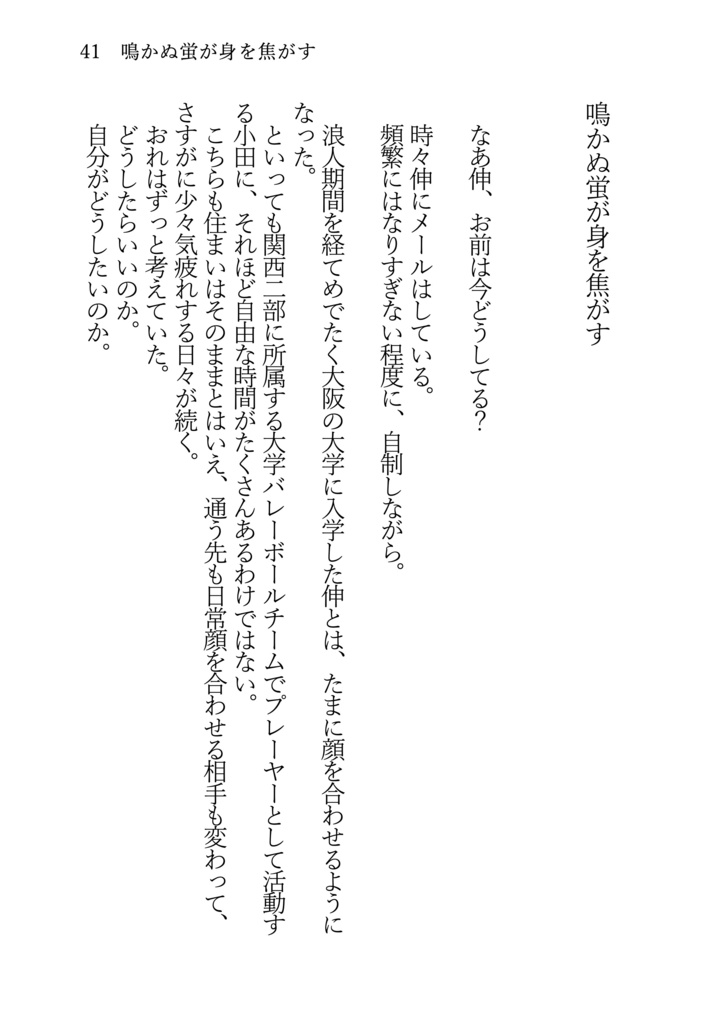 41 鳴かぬ蛍が身を焦がす
鳴かぬ蛍が身を焦がす
なあ伸、お前は今どうしてる?
時々伸にメールはしている。
頻繁にはなりすぎない程度に、自制しながら。
浪人期間を経てめでたく大阪の大学に入学した伸とは、たまに顔を合わせるように
なった。
といっても関西二部に所属する大学バレーボールチームでプレーヤーとして活動す
る小田に、それほど自由な時間がたくさんあるわけではない。
こちらも住まいはそのままとはいえ、通う先も日常顔を合わせる相手も変わって、
さすがに少々気疲れする日々が続く。
おれはずっと考えていた。
どうしたらいいのか。
自分がどうしたいのか。